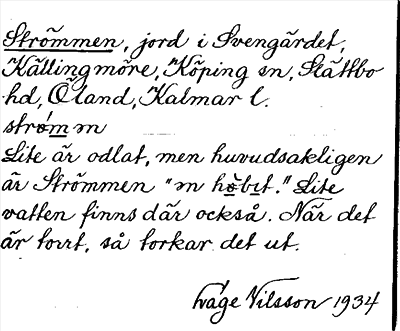 Strömmen, jord i Svengärdet,
Källingmöre, Köping sn, Slättbo
hd, Öland, Kalmar l.
strö́m m
Lite är odlat, men huvudsakligen
är Strömmen "m höbıt." Lite
vatten finns där också. När det
är torrt, så torkar det ut.
Våge Nilsson 1934